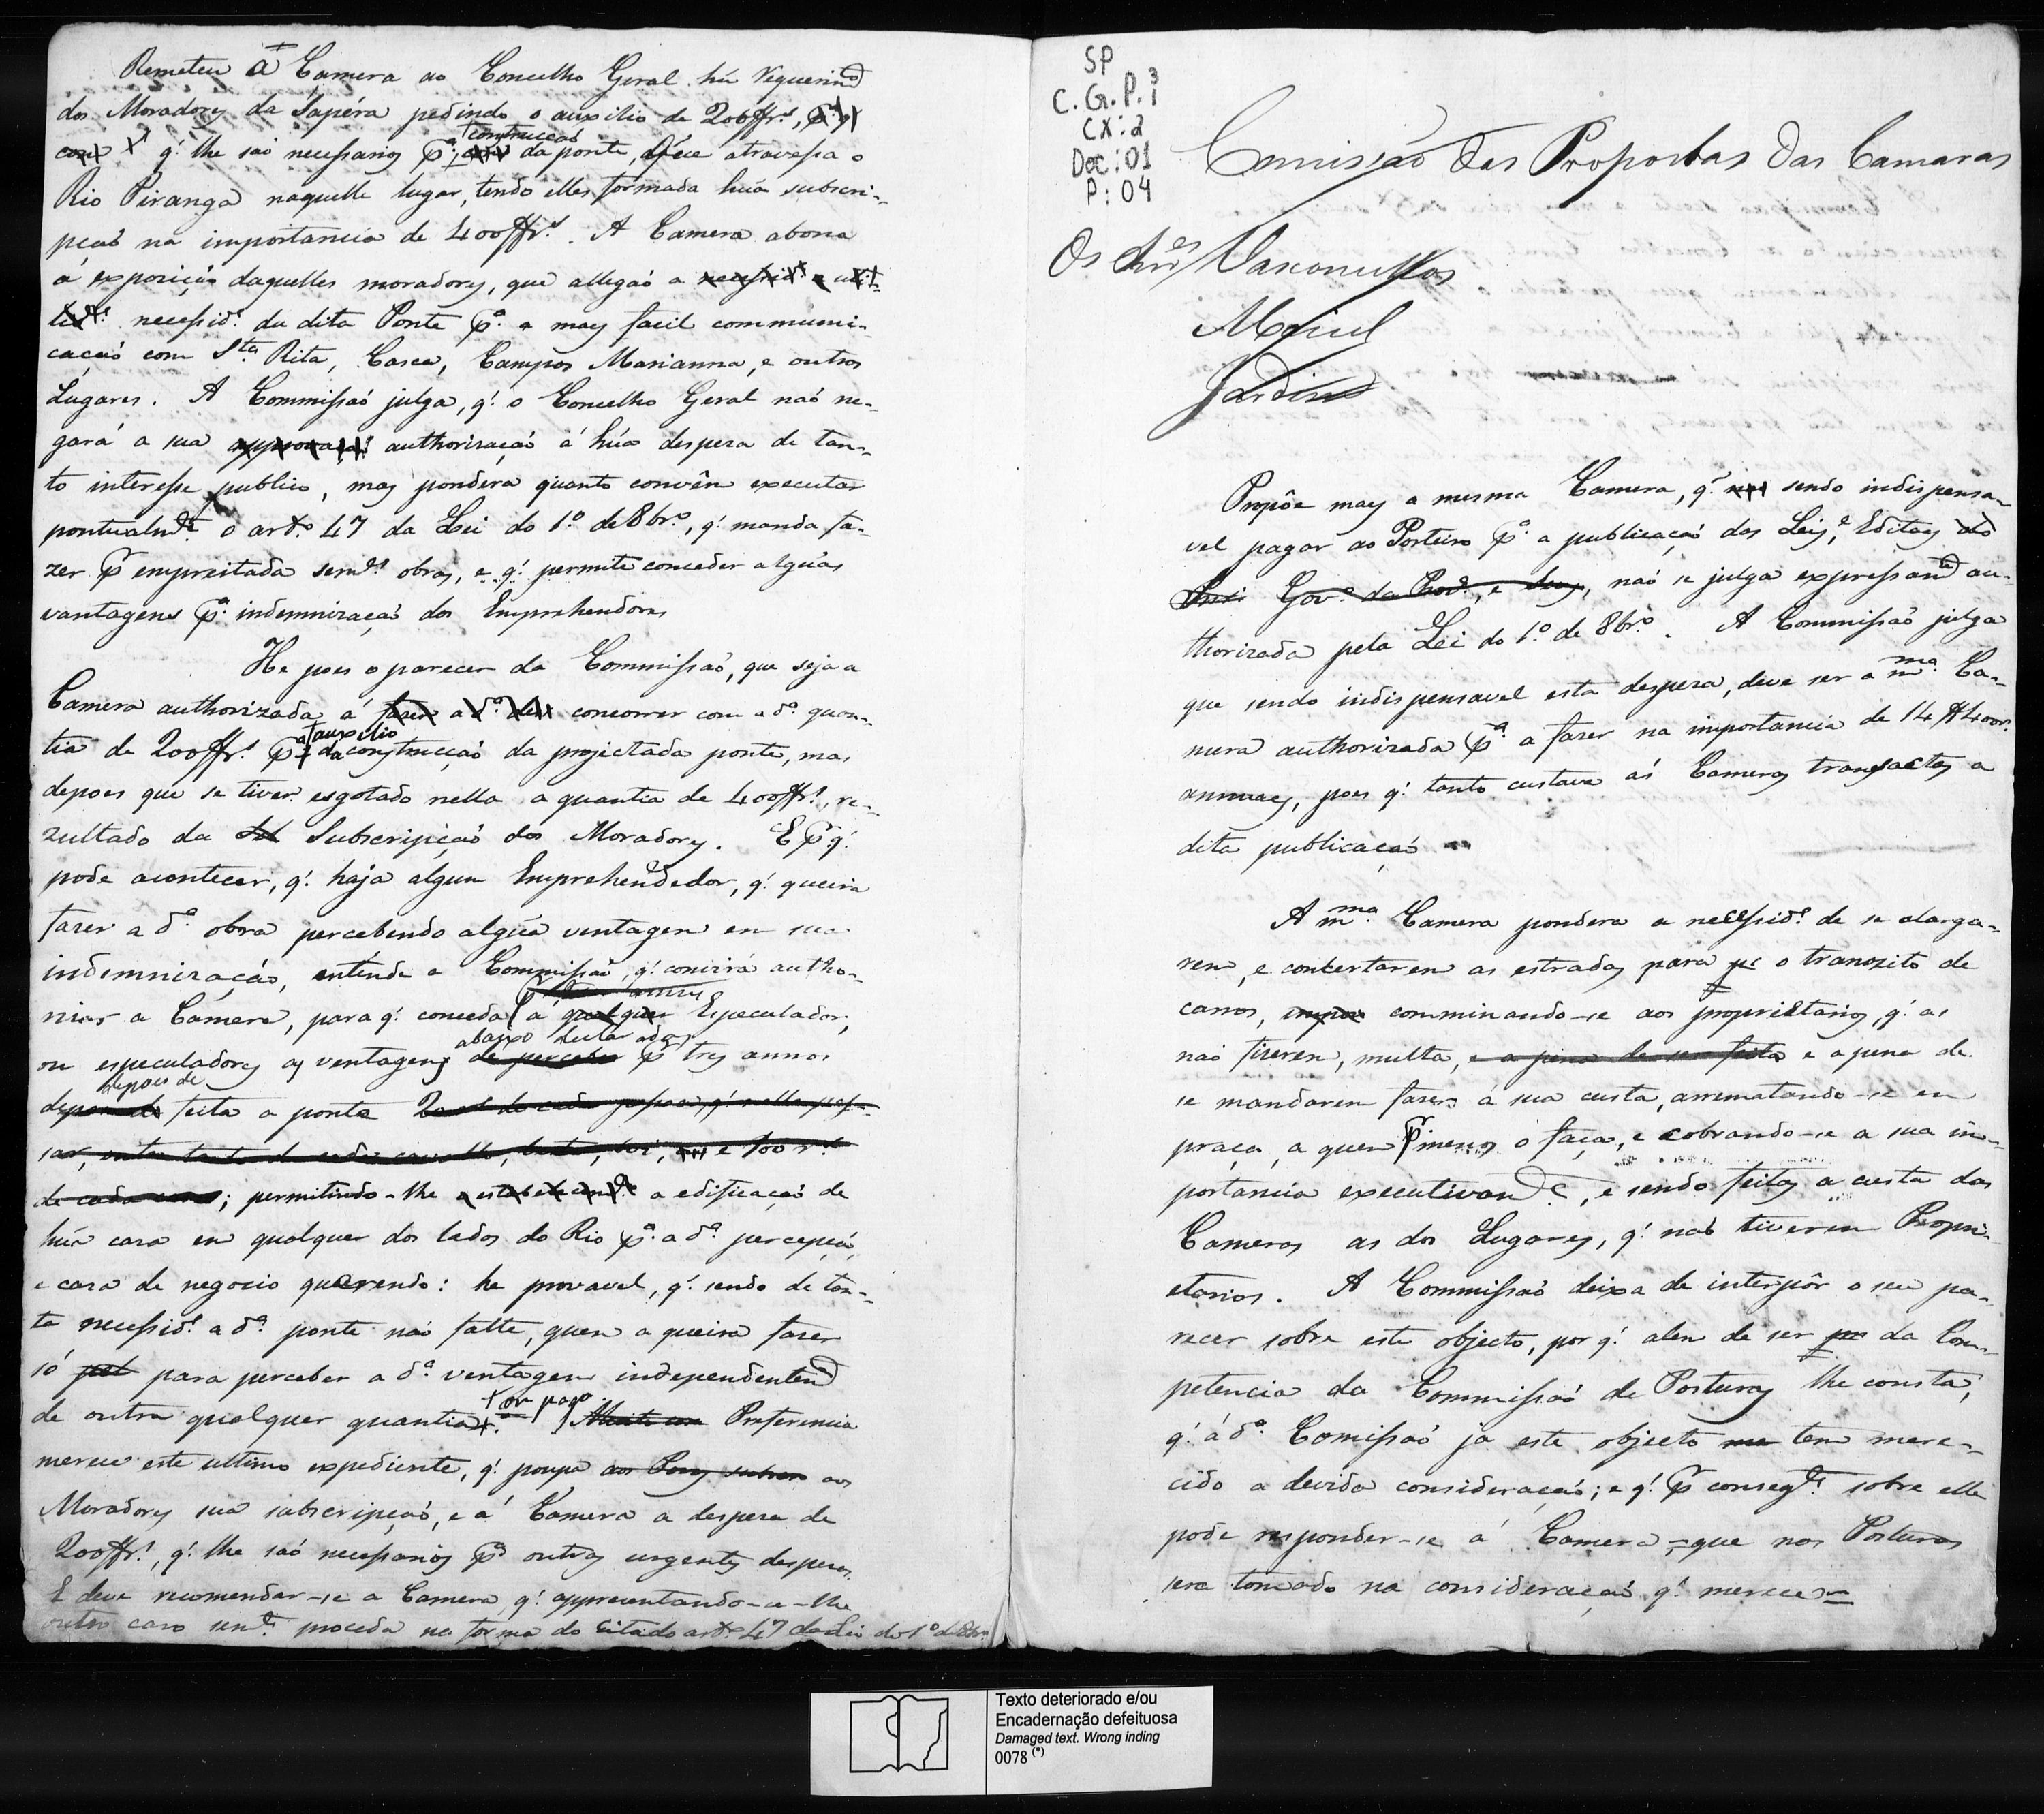 Remeteu a Camera ao Concelho Geral hú requerim.to
dos Moradores da Sapéra pedindo o auxilio de 200$rs,
q' lhe saó necessarios p.a construcçaó da ponte, q̃ atravessa o
Rio Piranga naquelle lugar, tendo elles formada húa subscri-
pçaó na importancia de 400$rs. A Camera abona
a exposiçaó daquelles moradores, que allegaó a necessid.e e uti-
lid.e necessid.e da dita Ponte p.a a mais facil communi-
caçaó com S.ta Rita, Casca, Campos Marianna, e outros
Lugares. A Commissaó julga, q' o Concelho Geral naó ne-
gará a sua approvaçaó authorizaçaó á húa despeza de tan-
to interesse publico, mas pondera quanto convên executar
pontualm.te o art.o 47 da Lei do 1.o de 8br.o, q' manda fa-
zer p.r empreitada sem.es obras, e q' permitte conceder algúas
vantagens p.a indemnizaçaó dos Emprehendores
He pois o parecer da Commissaó, que seja a
Camera authorizada á fazer a d.a concorrer com a d.a quan-
tia de 200$rs p.a auxilio da construcçaó da projectada ponte, mas
depois que se tiver esgotado nella a quantia de 400$rs, re-
zultado da Subscripçaó dos Moradores. E p.r q'
pode acontecer, q' haja algum Emprehendedor, q' queira
fazer a d.a obra percebendo algúa ventagem em sua
indemnizaçaó, entende a Commissaó, q' convirá autho-
rizar a Camera, para q' conceda á qualquer Especulador,
ou especuladores as ventagens abaixo declaradas de perceber p.r tres annos
depois de feita a ponte
de cada carro; permitindo-lhe o estabelecim.to a edificaçaó de
húa casa em qualquer dos lados do Rio p.a a d.a percepçaó,
e casa de negocio querendo: he provavel, q' sendo de tan-
ta necessid.e a d.a ponte naó falte, quem a queira fazer
só para perceber a d.a ventagem independentem.te
de outra qualquer quantia ou pago. Preferencia
merece este ultimo expediente, q' poupa aos
Moradores sua subscripçaó, e á Camera a despeza de
200$rs, q' lhe saó necessarios p.a outras urgentes despezas
E deve recomendar-se a Camera q' appresentando-se-lhe
outro caso sem.e proceda na forma do citado art.o 47 da Lei do 1.o de 8br.o
SP
C.G.P. 1 3
CX: 2
Doc: 01
P: 04
Comissaõ das Propostas das Camaras
Os Snr.es Vasconcellos
Maciel
Jardim
Propôe mais a mesma Camera, q' sendo indispensa-
vel pagar ao Porteiro p.a a publicaçaó das Leis, e Editaes do
Gov.o da Prov.a, e seus, naó se julga expressam.te au-
thorizada pela Lei do 1.o de 8br.o. A Commissaó julga
que sendo indispensavel esta despeza, deve ser a m.ma Ca-
mera authorizada p.a a fazer na importancia de 14$400rs
annuaes, pois q' tanto custava ás Cameras transactas a
dita publicaçaó
A m.ma Camera pondera a necessid.e de se alarga-
rem, e concertarem as estradas para o tranzito de
carros, comminando-se aos proprietarios, q' as
naó fizerem, multa, e a pena de ser feita e a pena de
se mandarem fazer á sua custa, arrematando-se em
praça, a quem p.r menos o faça, e cobrando-se a sua im-
portancia executivam.te, e sendo feitas a custa das
Cameras as dos Lugares, q' naó tiverem Propri-
etarios. A Commissaó deixa de interpôr o seu pa-
recer sobre este objecto, por q' alem de ser da Com-
petencia da Commissaó de Posturas lhe consta,
q' á d.a Comissaó ja este objecto tem mere-
cido a devida consideraçaó; e q' p.r conseg.te sobre elle
pode responder-se á Camera = que nas Posturas
sera tomado na consideraçaó q' merece =
Texto deteriorado e/ou
Encadernação defeituosa
Damaged text. Wrong inding
0078 (*)